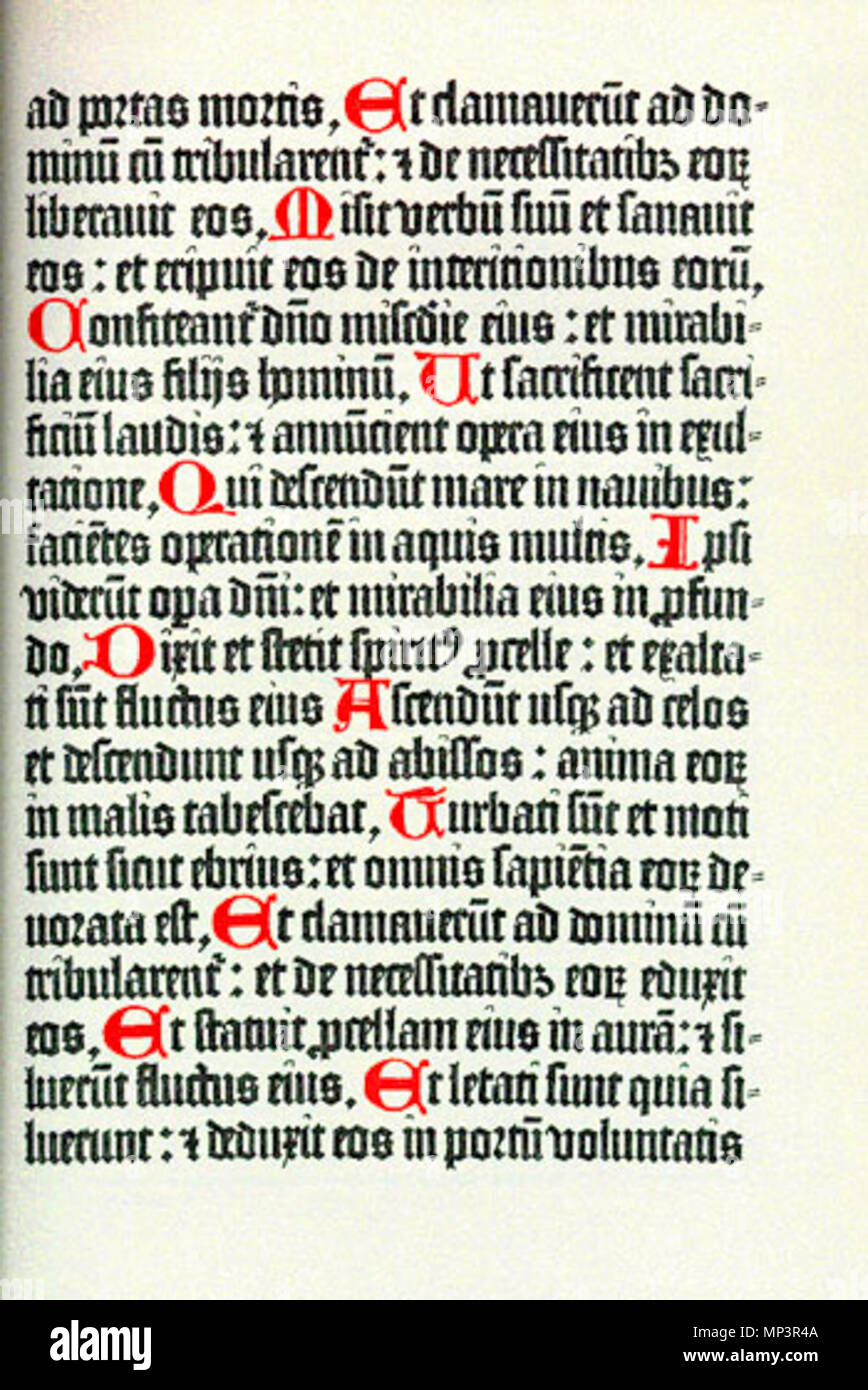 ad portas mortis, Et clamauerūt ad do=
minū cū tribularent᷑: ⁊ de necessitatibꝫ eoꝝ
liberauit eos, Misit verbū suū et sanauit
eos: et eripuit eos de interitionibus eorū,
Confiteant᷑ dn̄o miscd̄ie eius: et mirabi=
lia eius filijs hominū, Ut sacrificent sacri=
ficiū laudis: ⁊ annūcient opera eius in exul=
tatione, Qui descendūt mare in nauibus:
faciētes operationē in aquis multis, Ipsi
viderūt oꝑa dn̄i: et mirabilia eius in ꝓfun=
do, Dixit et stetit spiritꝰ ꝓcelle: et exalta=
ti sūt fluctus eius Ascendūt usqꝫ ad celos
et descendunt usqꝫ ad abissos: anima eoꝝ
in malis tabescebat, Turbati sūt et moti
sunt sicut ebrius: et omnis sapiētia eoꝝ de=
uorata est, Et clamauerūt ad dominū cū
tribularent᷑: et de necessitatibꝫ eoꝝ eduxit
eos, Et statuit ꝓcellam eius in aurā: ⁊ si=
luerūt fluctus eius, Et letati sunt quia si=
luerunt: ⁊ deduxit eos in portū voluntatis
alamy
Image ID: MP3R4A
www.alamy.com